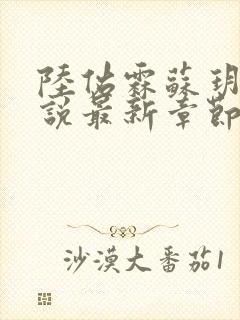 陸佔霖蘇玥
說最新章節
沙漠大番茄1